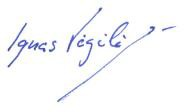 Ignas Vėgėlė